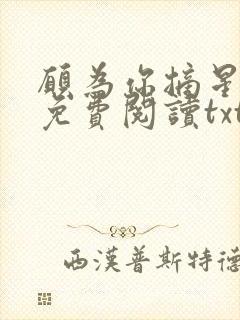 願為你摘星
免費閱讀txt
西漢普斯特德